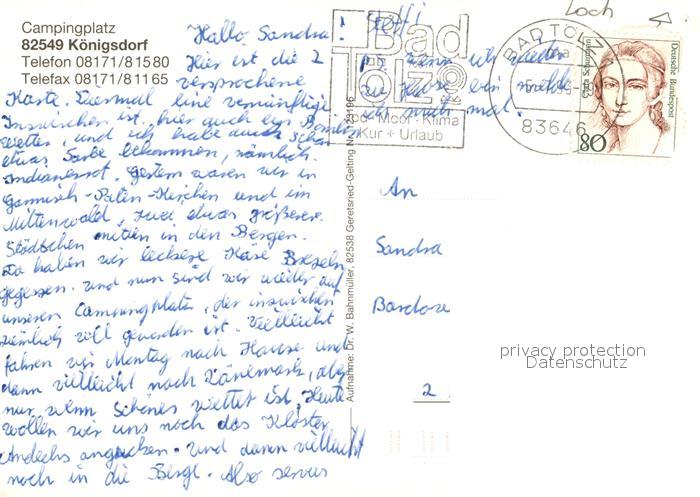 Campingplatz
82549 Königsdorf
Telefon 08171/81580
Telefax 08171/81165
Hallo Sandra!
Hier ist die 2
versprochene
Karte. Diesmal eine vernünftige.
Inzwischen ist hier auch ein
Wetter, und ich habe auch schon
etwas Farbe bekommen, nämlich
Indianerrot. Gestern waren wir in
Garmisch-Paten-Kirchen und in
Mittenwald, zwei etwas größere
Städtchen mitten in den Bergen.
Da haben wir leckere Käse Brezeln
gegessen. und nun sind wir wieder auf
unseren Campingplatz, der inzwischen
ziemlich voll geworden ist. Vielleicht
fahren wir Montag nach Hause und
dann vielleicht nach Dänemark, aber
nur wenn schönes Wetter ist. Heute
wollen wir uns noch das Kloster
Andechs angucken. Und dann vielleicht
noch in die Berge. Also servus
Steffi
wenn wir wieder
zu Hause sein
ich noch mal.
Loch
Bad
Tölz
Moor · Klima
Kur + Urlaub
BAD TÖLZ
83646
Deutsche Bundespost
Clara Schumann
80
Aufnahme: Dr. W. Bahnmüller, 82538 Geretsried-Gelting
An
Sandra
2
privacy protection
Datenschutz